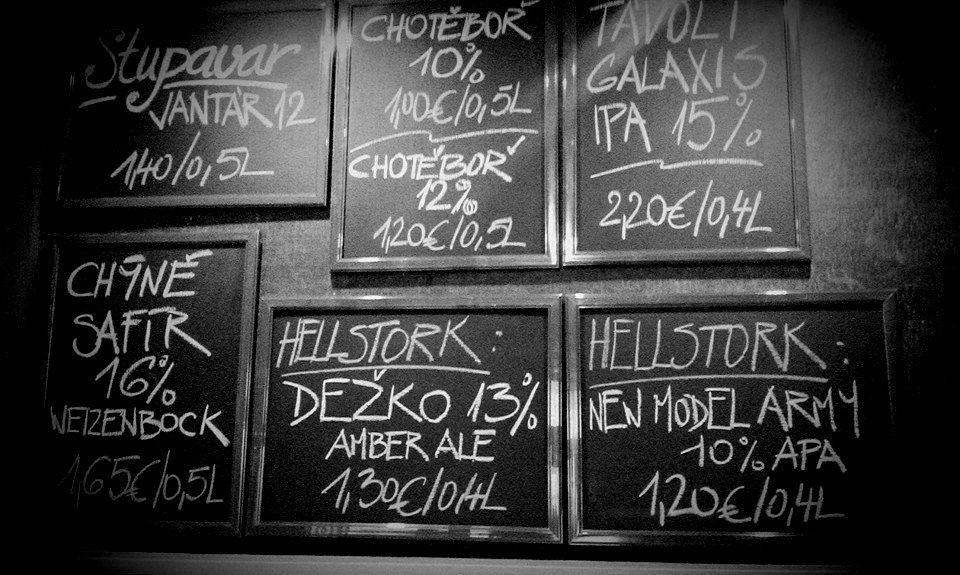 Stupavar
JANTÁR 12
1,40/0,5L
CHOTĚBOŘ
10%
1,00€/0,5L
CHOTĚBOŘ
12%
1,20€/0,5L
TAVOLI
GALAXIS
IPA 15%
2,20€/0,4L
CHÝNĚ
SAFÍR
16%
WEIZENBOCK
1,65€/0,5L
HELLSTORK:
DEŽKO 13%
AMBER ALE
1,30€/0,4L
HELLSTORK:
NEW MODEL ARMY
10% APA
1,20€/0,4L